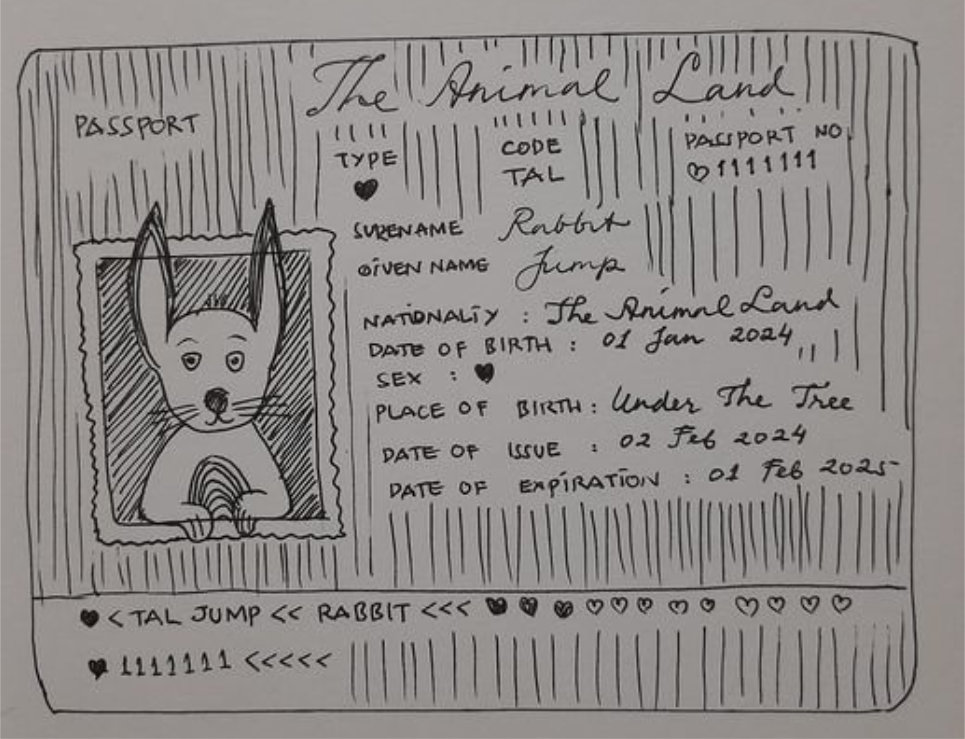 The Animal Land
PASSPORT
TYPE CODE PASSPORT NO.
♥ TAL ♡1111111
SURENAME Rabbit
GIVEN NAME Jump
NATIONALITY : The Animal Land
DATE OF BIRTH : 01 Jan 2024
SEX : ♥
PLACE OF BIRTH : Under The Tree
DATE OF ISSUE : 02 Feb 2024
DATE OF EXPIRATION : 01 Feb 2025
♥ < TAL JUMP << RABBIT <<< ♥ ♥ ♥ ♡ ♡ ♡ ♡ ♡ ♡ ♡ ♡ ♡
♥ 1111111 <<<<<